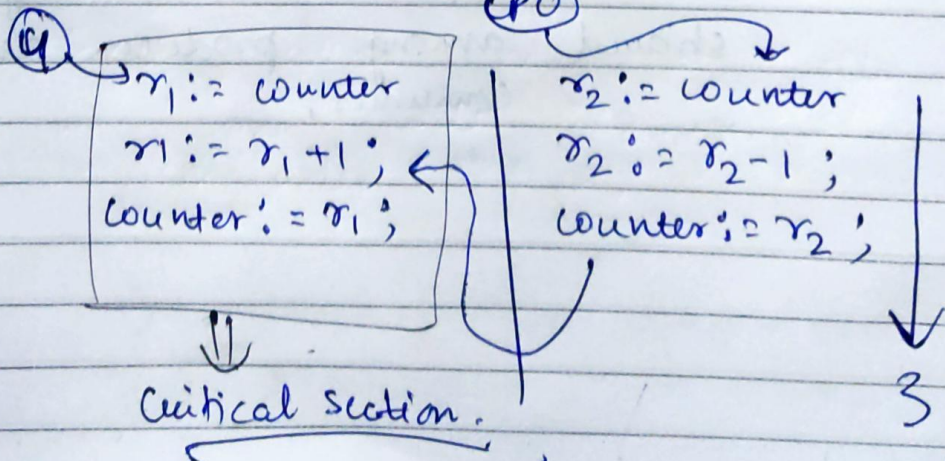 r1 := counter
r1 := r1 + 1 ;
counter := r1 ;
Critical section.
r2 := counter
r2 := r2 - 1 ;
counter := r2 ;
3